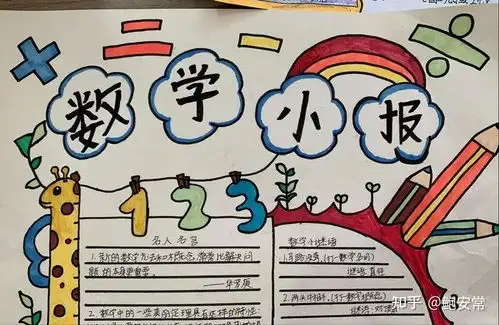 数学小报
1 2 3
名人名言
1.新的数学方法和概念,常常比解决问
题的本身更重要。
——华罗庚
2.数学中的一些美丽定理具有这样的特性:
数学小谜语
(打一数学名词)
谜语:直径
2.两头牛打架,(打一数学概念)
谜语:对顶
知乎 @鲍安常